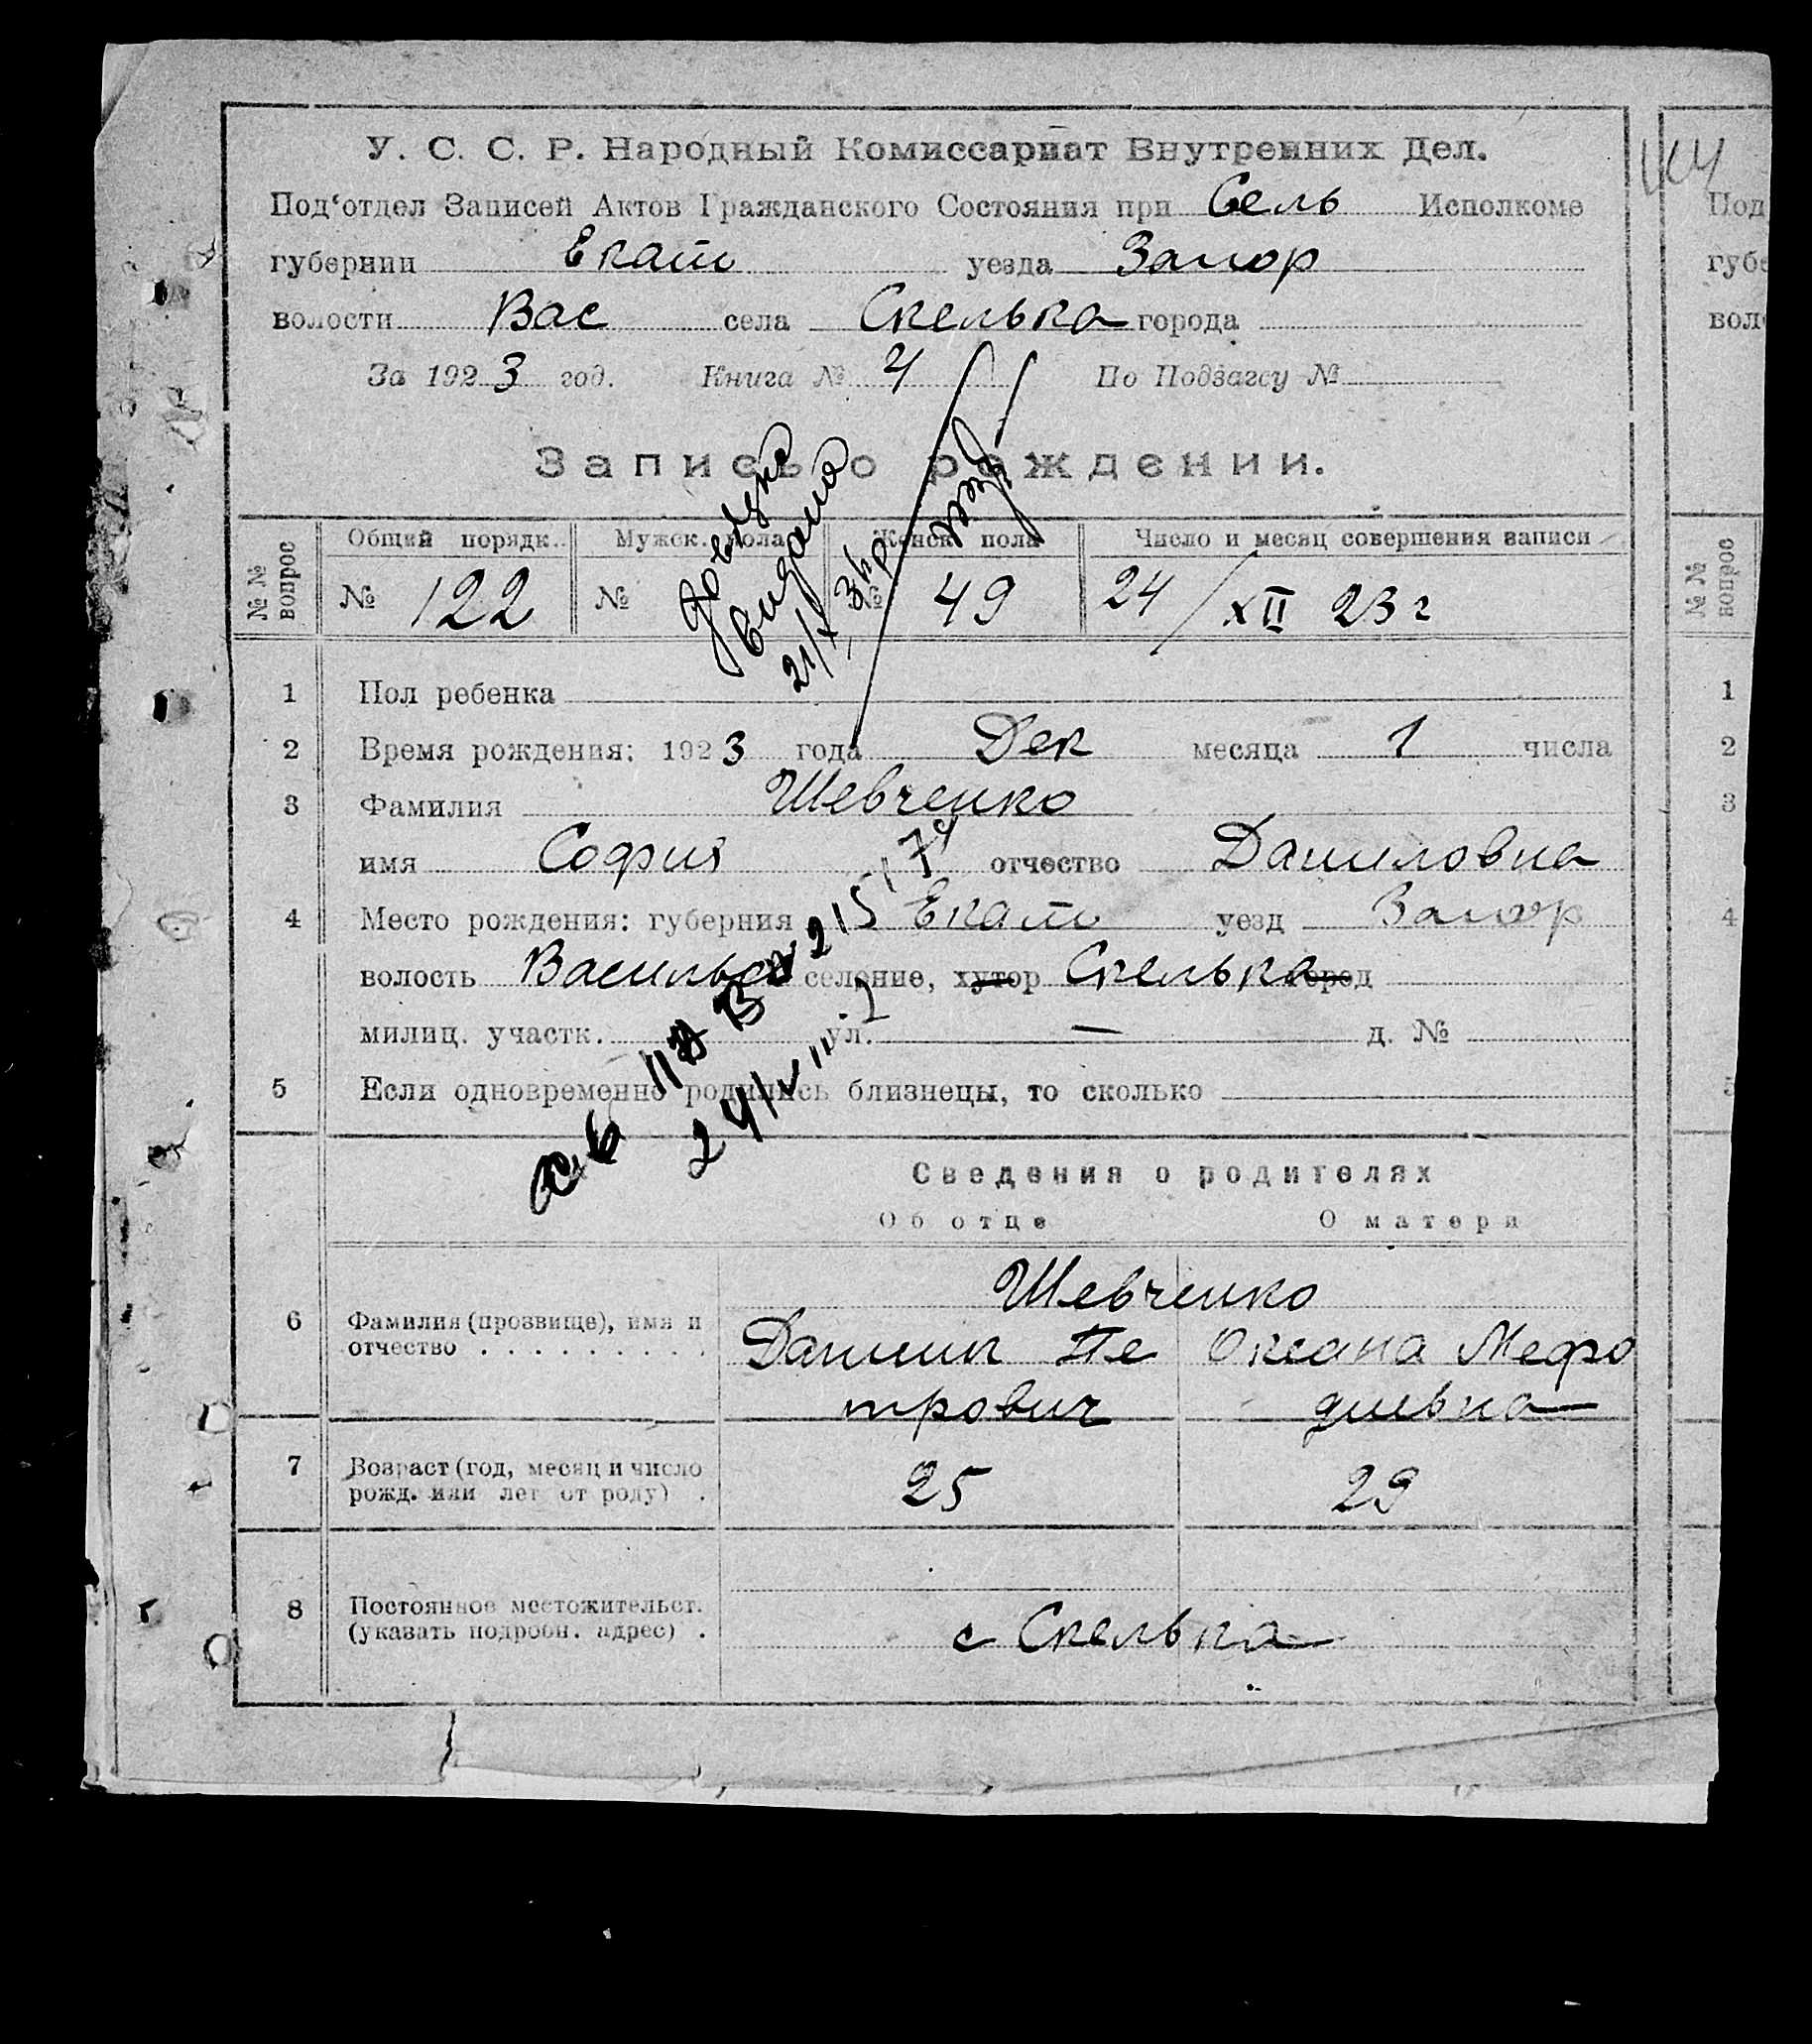 У. С. С. Р. Народный Комиссариат Внутренних Дел.
Под‘отдел Записей Актов Гражданского Состояния при Сель Исполкоме
губернии Екат уезда Запор
волости Вас села Скелька города
За 1923 год. Книга № 4 По Подзагсу №
Запись о рождении.
№№ вопрос
Общий порядк. Мужск. пола Женск. пола Число и месяц совершения записи
№ 122 № № 49 24/XII 23 г
Довідка
видана
21/X
1 Пол ребенка
2 Время рождения: 1923 года Дек месяца 1 числа
3 Фамилия Шевченко
имя София отчество Даниловна
4 Место рождения: губерния Екат уезд Запор
волость Васильев селение, хутор Скелька город
милиц. участк. ул. — д. №
5 Если одновременно родились близнецы, то сколько
Сведения о родителях
Об отце О матери
Шевченко
6 Фамилия (прозвище), имя и отчество Даниил Петрович Оксана Мефодиевна
7 Возраст (год, месяц и число рожд. или лет от роду) 25 29
8 Постоянное местожительст. (указать подробн. адрес) с Скелька
Под
губе
воло
№№ вопрос
1
2
3
4
5